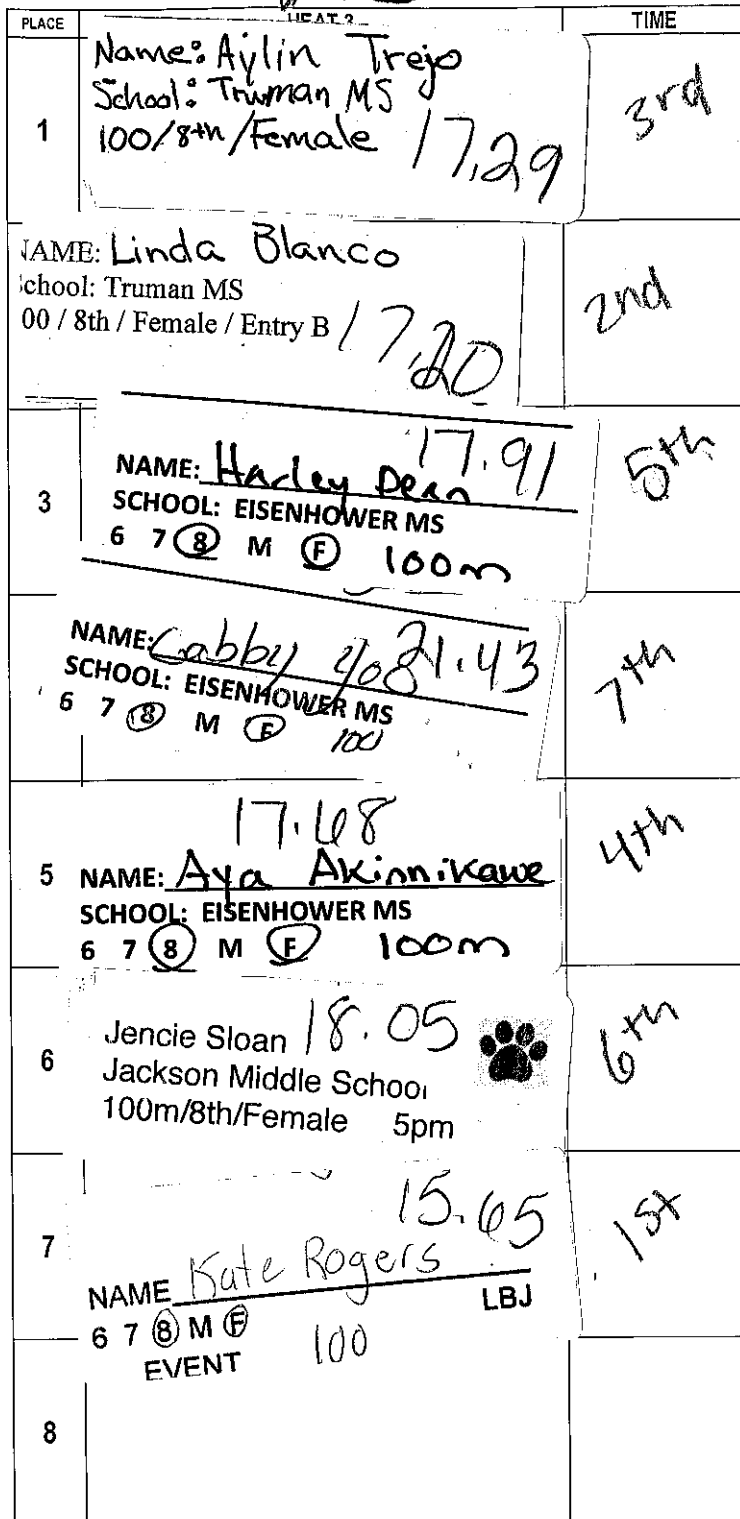 PLACE HEAT 2 TIME
1
Name: Aylin Trejo
School: Truman MS
100/8th/Female 17.29
3rd
NAME: Linda Blanco
School: Truman MS
00 / 8th / Female / Entry B 17.20
2nd
17.91
3 NAME: Harley Dean
SCHOOL: EISENHOWER MS
6 7 8 M F 100m
5th
NAME: Gabby 21.43
SCHOOL: EISENHOWER MS
6 7 8 M F 100
7th
17.68
5 NAME: Aya Akinnikawe
SCHOOL: EISENHOWER MS
6 7 8 M F 100m
4th
6
Jencie Sloan 18.05
Jackson Middle School
100m/8th/Female 5pm
6th
15.65
7
NAME Kate Rogers LBJ
6 7 8 M F
EVENT 100
1st
8